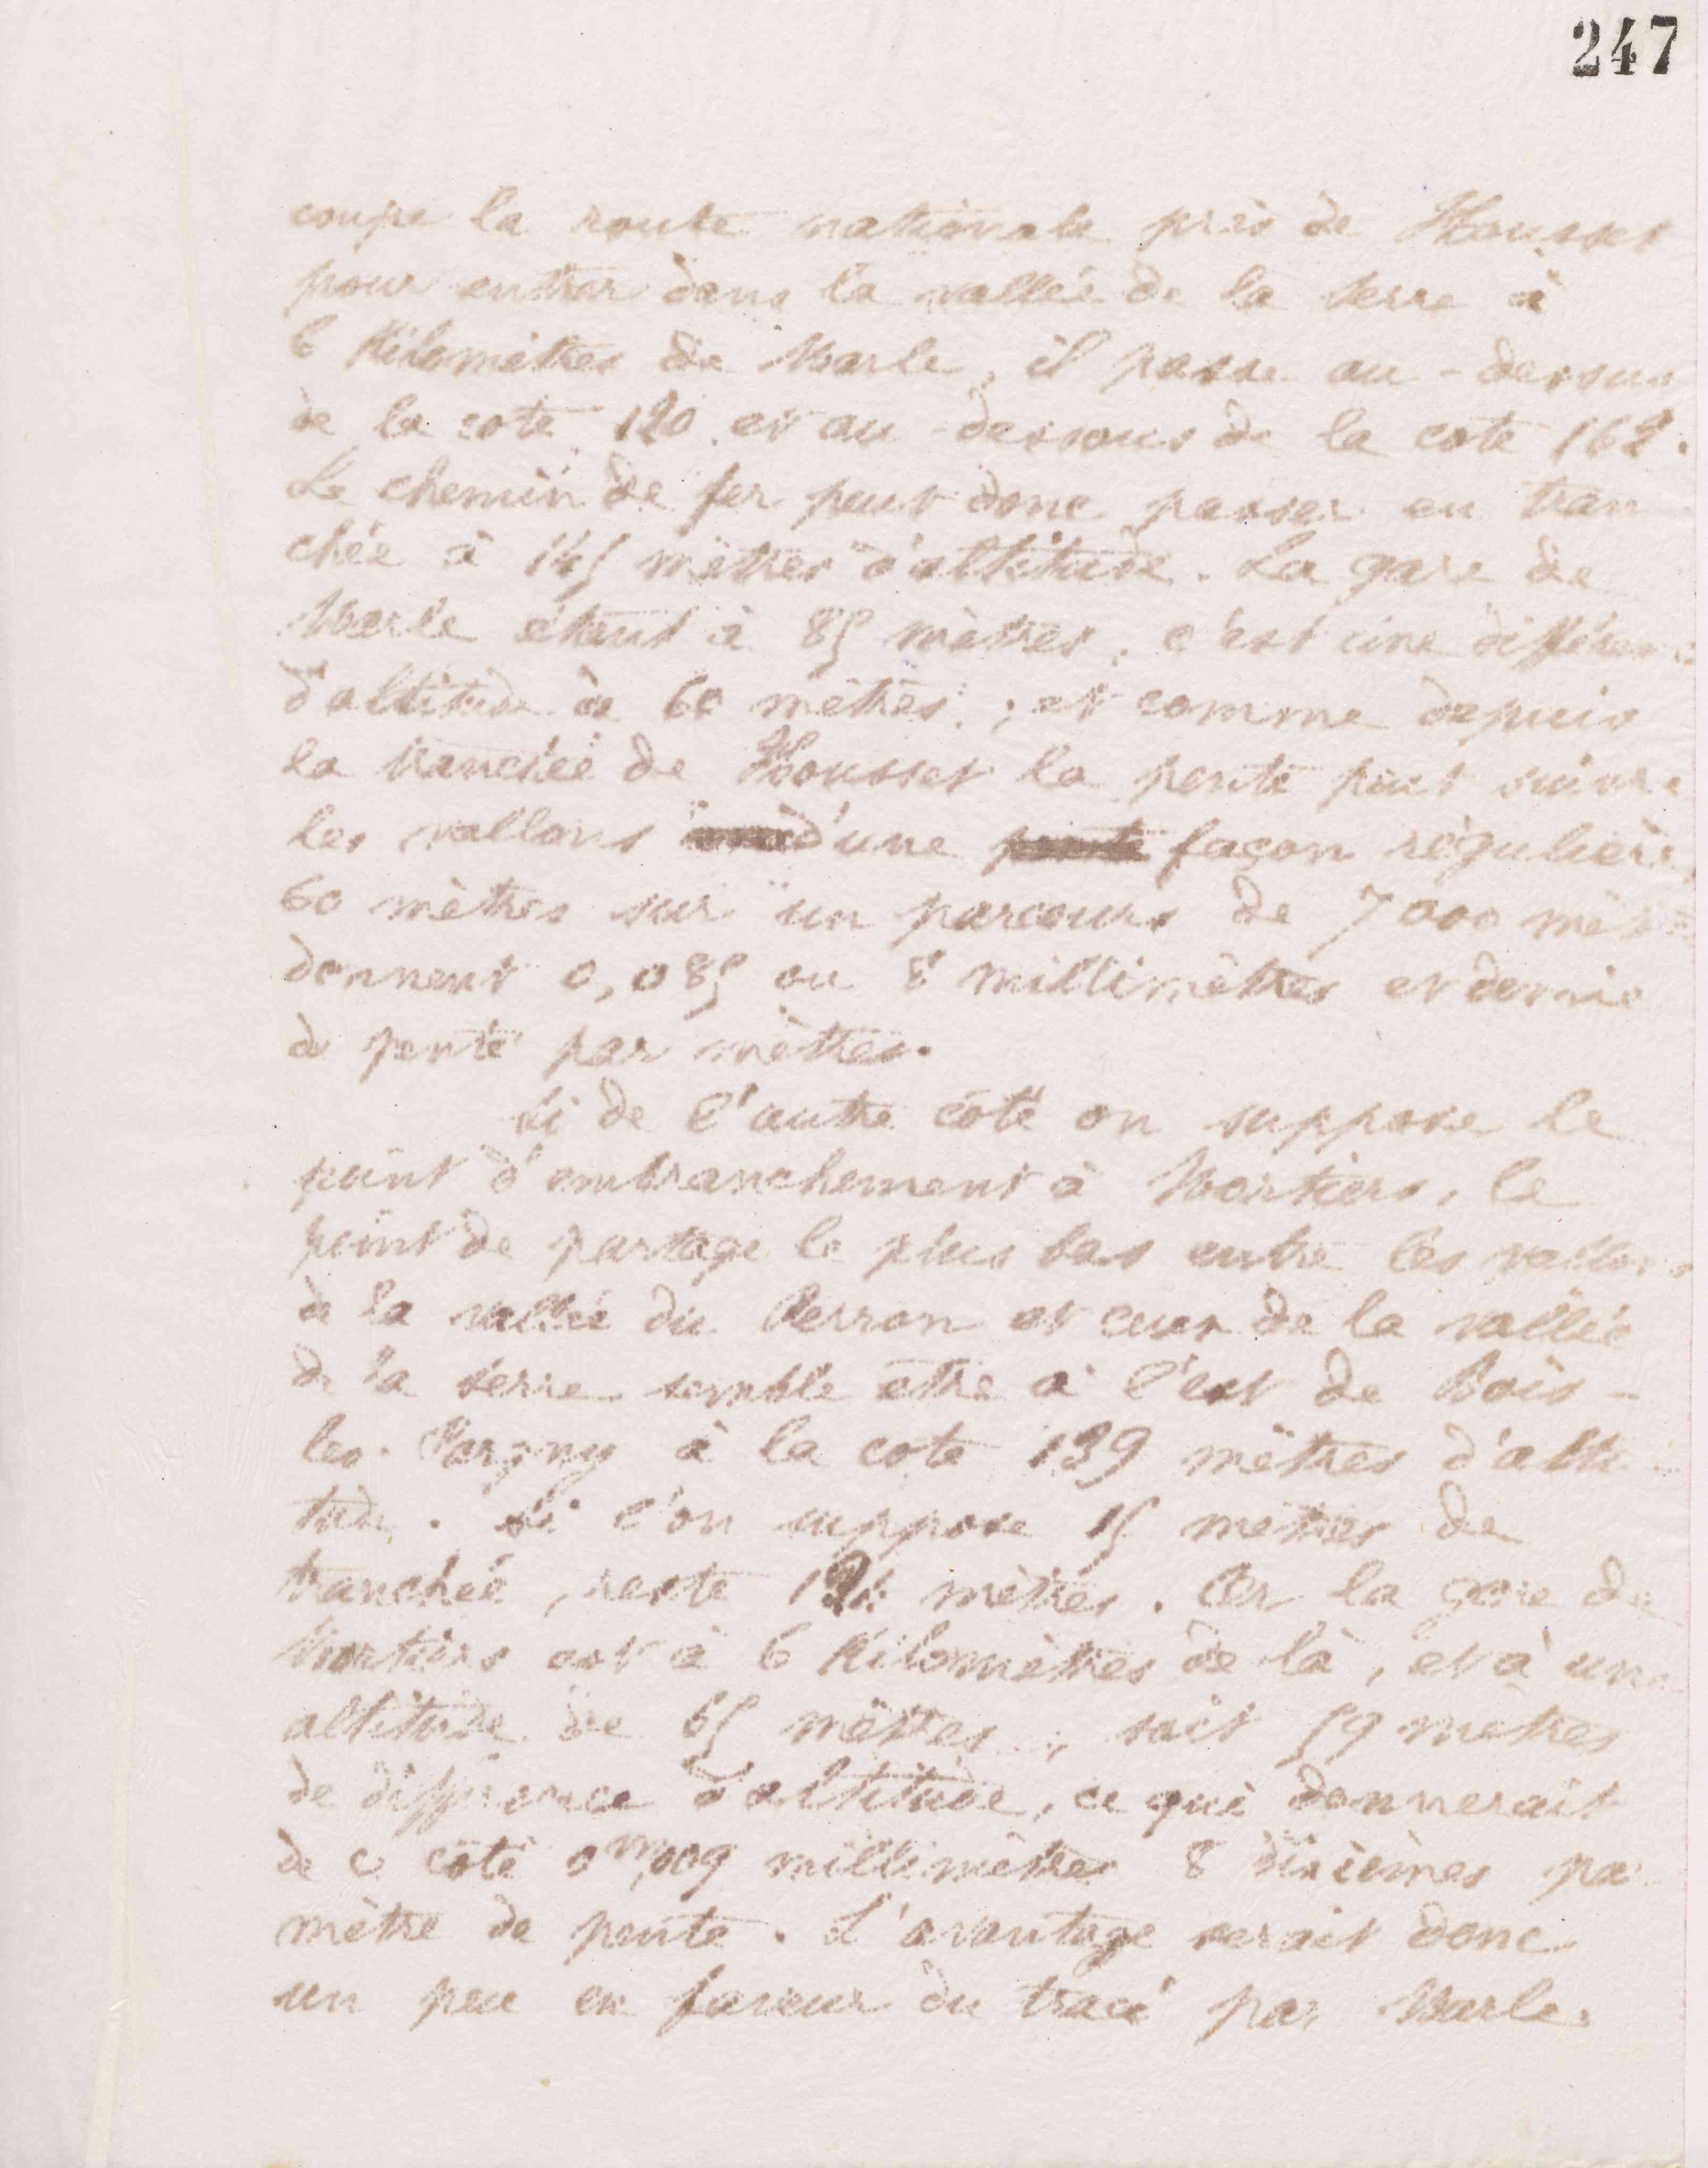 247
coupe la route nationale près de Housset
pour entrer dans la vallée de la Serre à
6 Kilomètres de Marle, il passe au-dessus
de la cote 120 et au-dessous de la cote 162.
Le chemin de fer peut donc passer en tran
chée à 145 mètres d'altitude. La gare de
Marle étant à 85 mètres, c'est une différen
d'altitude de 60 mètres ; et comme depuis
la tranchée de Housset la pente peut suivre
les vallons d'une pente façon régulière,
60 mètres sur un parcours de 7000 mètres
donnent 0,085 ou 8 millimètres et demie
de pente par mètres.
Si de l'autre côté on suppose le
point d'embranchement à Mortiers, le
point de partage le plus bas entre les vallons
de la vallée du Perron et ceux de la vallée
de la Serre semble être à l'est de Bois-
les-Pargny à la cote 139 mètres d'alti-
tude. Si l'on suppose 15 mètres de
tranchée, reste 124 mètres. Or la gare de
Mortiers est à 6 Kilomètres de là, et à une
altitude de 65 mètres ; soit 59 mètres
de différence d'altitude, ce qui donnerait
de ce côté 0m,009 millimètres 8 dixièmes par
mètre de pente. L'avantage serait donc
un peu en faveur du tracé par Marle.